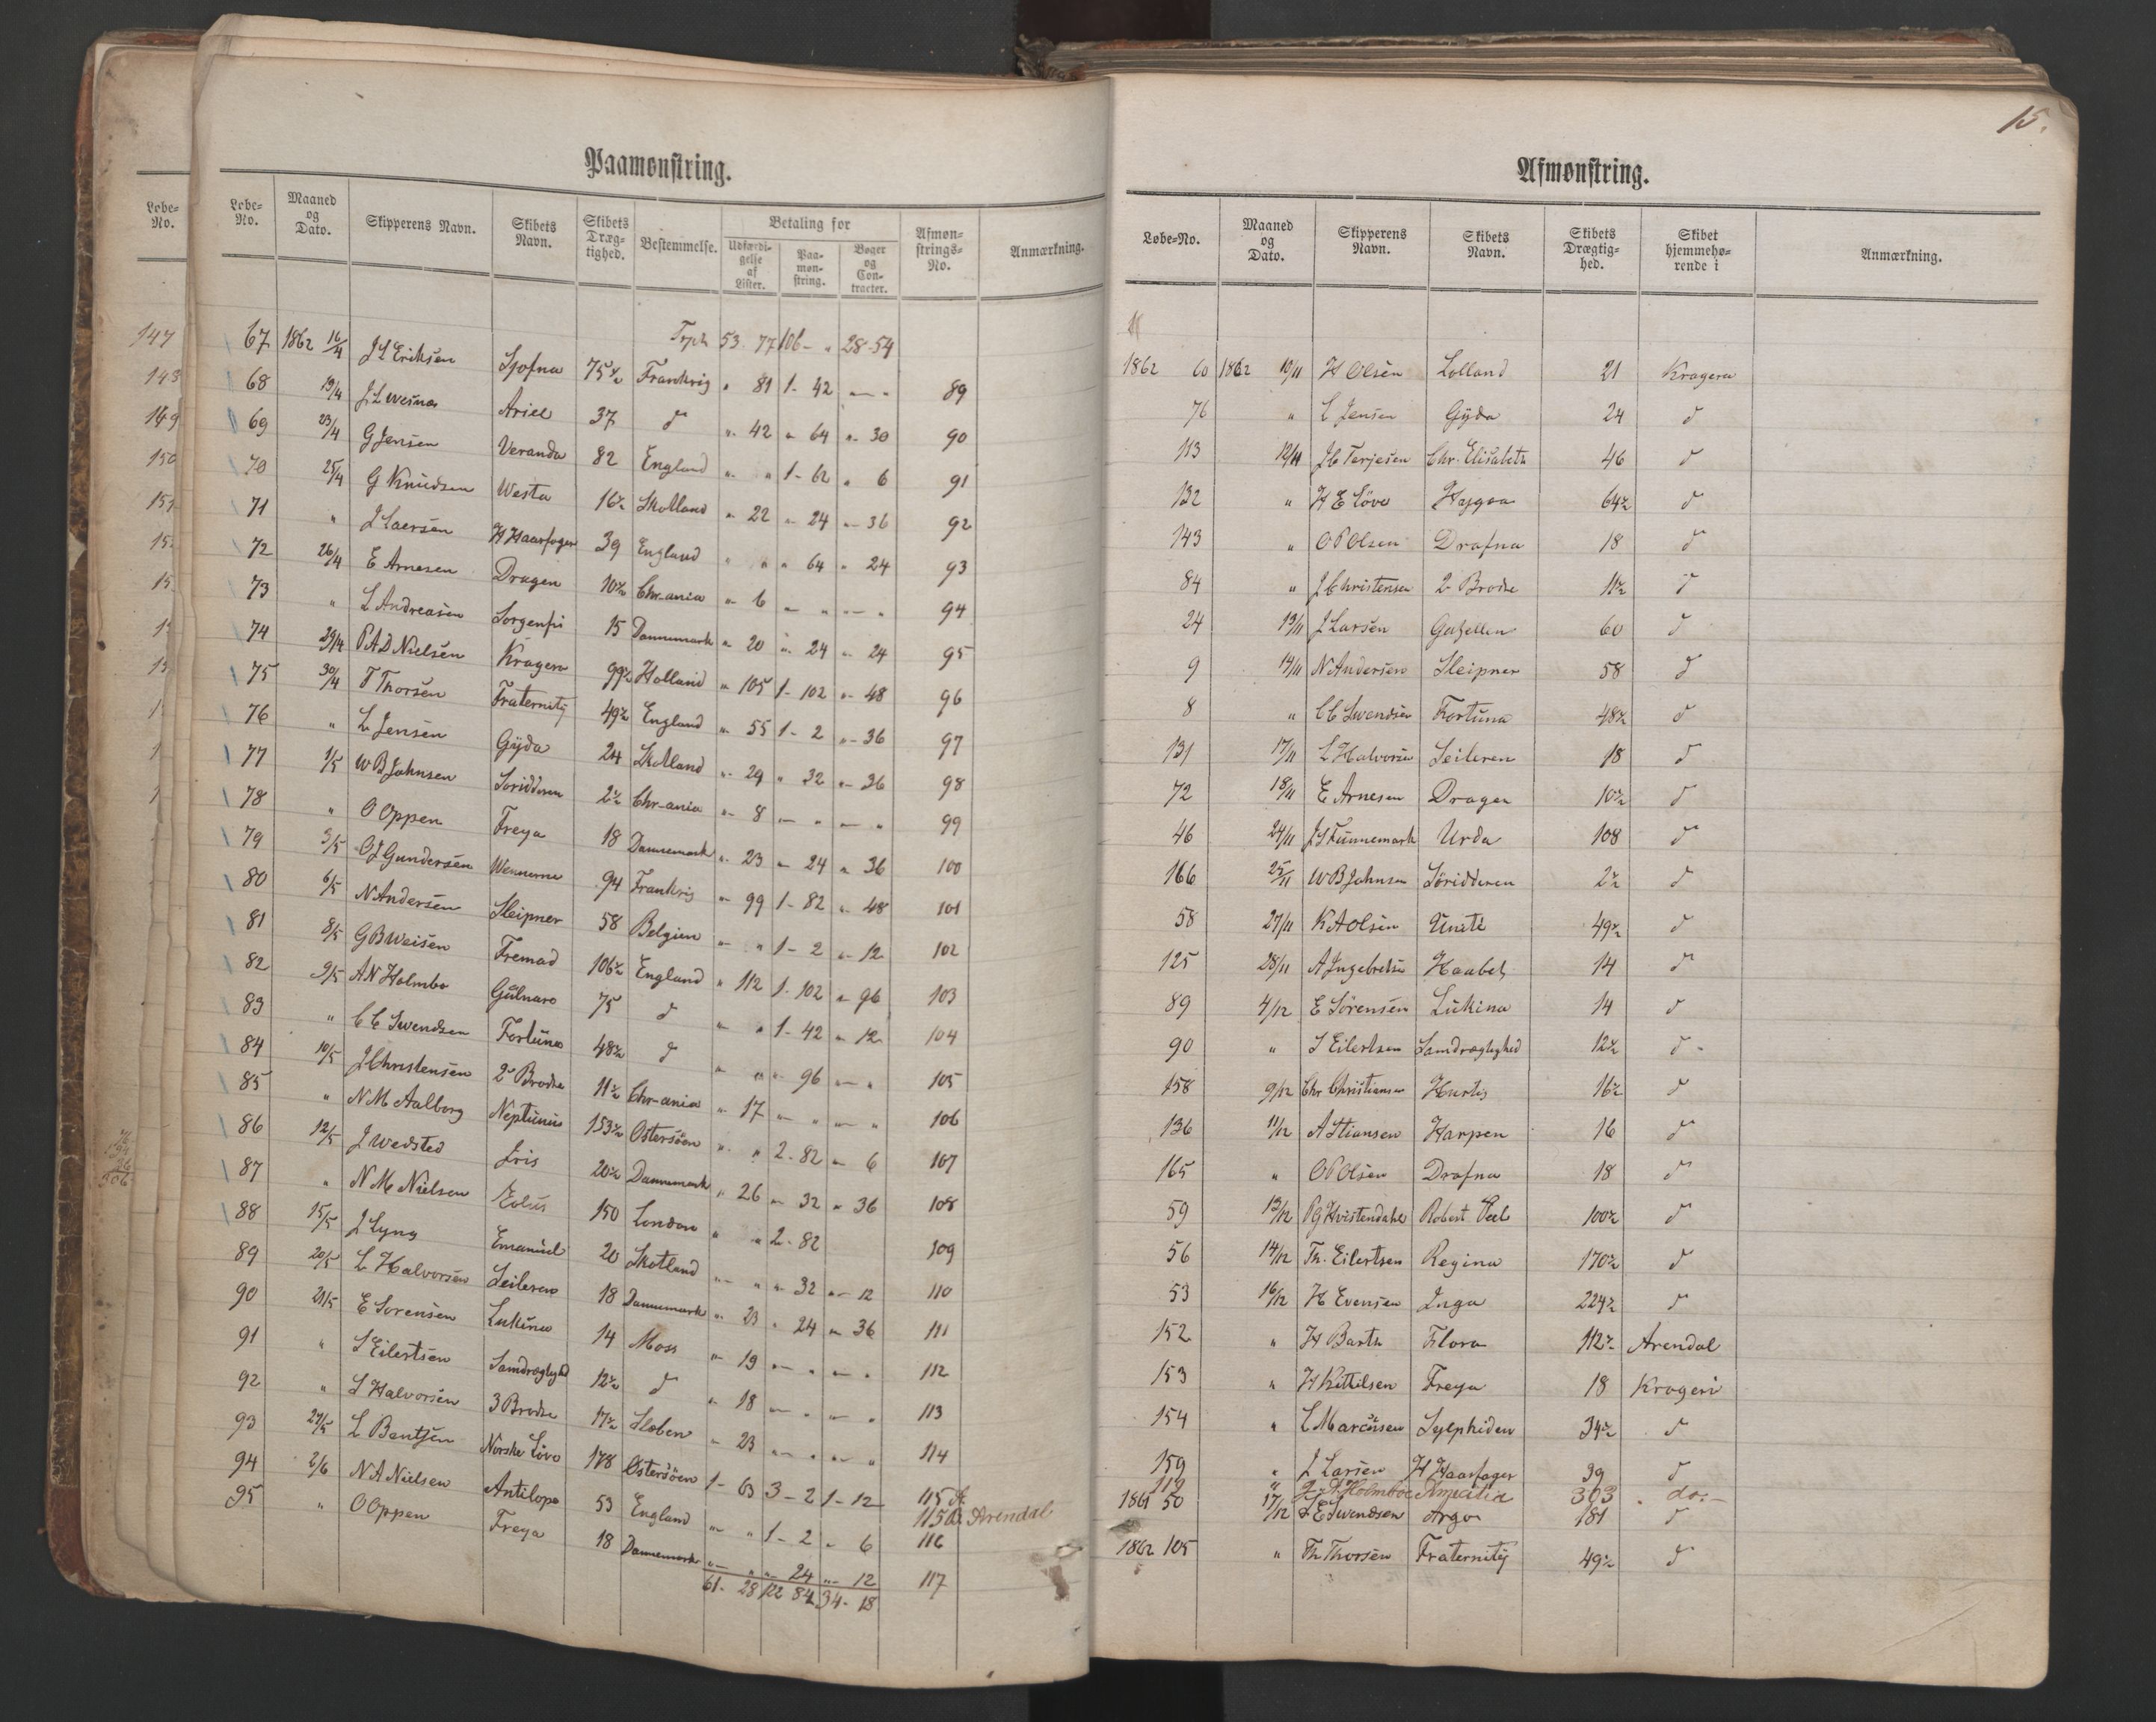 15.
Paamønstring.
Løbe-No. Maaned og Dato. Skipperens Navn. Skibets Navn. Skibets Dræg-tighed. Bestemmelse. Betaling for Udfærdi-gelse af Lister. Paa-møn-string. Bøger og Con-tracter. Afmøn-strings-No. Anmærkning.
53 77 106 - " 28-54
67 1862 16/4 J S Eriksen Sjofna 75½ Frankrig " 81 1- 42 — " 89
68 19/4 Ariel 37 d " 42 " 64 " 30 90
69 23/4 G Jensen Veranda 82 England " " 1- 62 " 6 91
70 25/4 G Knudsen Westa 16½ Skotland " 22 " 24 " 36 92
71 " J Laersen H Haarfager 39 England " " " 64 " 24 93
72 26/4 E Arnesen Dragen 10½ Chr-ania " 6 — " — " 94
73 " L Andreasen Sorgenfri 15 Dannemark " 20 " 24 " 24 95
74 29/4 P A D Nielsen Kragerø 99½ Holland " 105 1- 102 " 48 96
75 30/4 T Thorsen Fraternity 49½ England " 55 1- 2 " 36 97
76 " L Jensen Gyda 24 Skotland " 29 " 32 " 36 98
77 1/5 W B Johnsen Søridderen 2½ Chr-ania " 8 — " — " 99
78 " O Oppen Freya 18 Dannemark " 23 " 24 " 36 100
79 3/5 O J Gundersen 94 Frankrig " 99 1- 82 " 48 101
80 6/5 N Andersen Sleipner 58 Belgien " " 1- 2 " 12 102
81 8/5 G B Weisen Fremad 106½ England " 112 1- 102 " 96 103
82 9/5 A N Holmbo Gulnare 75 d " " 1- 42 " 12 104
83 " C C Swendsen Fortuna 48½ d " " " 96 — " 105
84 10/5 J Christensen 2 Brødre 11½ Chr-ania " 17 — " — " 106
85 " N M Aalborg Neptunus 153½ Østersøen " " 2- 82 " 6 107
86 12/5 J Wedsted Iris 20½ Dannemark " 26 " 32 " 36 108
87 " N M Nielsen Eolus 150 London " " 2- 82 109
88 15/5 J Lyng Emanuel 20 Skotland " " " 32 " 12 110
89 20/5 L Halvorsen Seileren 18 Dannemark " 23 " 24 " 36 111
90 21/5 E Sørensen Lukina 14 Moss " 19 — " — " 112
91 " S Eilertsen Samdrægtighed 12½ d " 18 — " — " 113
92 " S Halvorsen 3 Brødre 17½ " 23 — " — " 114
93 27/5 L Bentsen Norske Løve 178 Østersøen 1- 63 3- 2 1- 12 115 A.
115 B. Arendal
94 2/6 N A Nielsen Antilope 53 England " " 1- 2 " 6 116
95 " O Oppen Freya 18 Dannemark " " " 24 " 12 117
61- 28 122 84 34- 18
Afmønstring.
Løbe-No. Maaned og Dato. Skipperens Navn. Skibets Navn. Skibets Drægtig-hed. Skibet hjemmehø-rende i Anmærkning.
1862 60 1862 10/11 H Olsen Lolland 21 Kragerø
76 " L Jensen Gyda 24 d
113 12/11 J C Terjesen Chr. Elisabeth 46 d
132 " H E Løvo 64½ d
143 " O P Olsen Drafna 18 d
84 " J Christensen 2 Brødre 11½ d
24 13/11 J Larsen Gazellen 60 d
9 14/11 N Andersen Sleipner 58 d
8 " C C Swendsen Fortuna 48½ d
131 17/11 L Halvorsen Seileren 18 d
72 18/11 E Arnesen Dragen 10½ d
46 24/11 J S Funnemark Urda 108 d
166 25/11 W B Johnsen Søridderen 2½ d
58 27/11 K A Olsen Unité 49½ d
125 28/11 A Ingebretsen Haabet 14 d
89 4/12 E Sørensen Lukina 14 d
90 " S Eilertsen Samdrægtighed 12½ d
158 9/12 Chr Christiansen Hurtig 16½ d
136 11/12 A Stiansen Harpen 16 d
165 " O P Olsen Drafna 18 d
59 13/12 P G Kvistendahl Robert Peel 100½ d
56 14/12 Th. Eilertsen Regina 170½ d
53 16/12 H Evensen Inga 224½ d
152 " H Barth Flora 112½ Arendal
153 " H Kittilsen Freya 18 Kragerø
154 " C Marcusen Sylphiden 34½ d
159 " J Larsen H Haarfager 39 d
119 " Holmboe Amicitia 303 do.
1861 50 17/12 S E Swendsen Argo 181 d
1862 105 " Th Thorsen Fraternity 49½ d